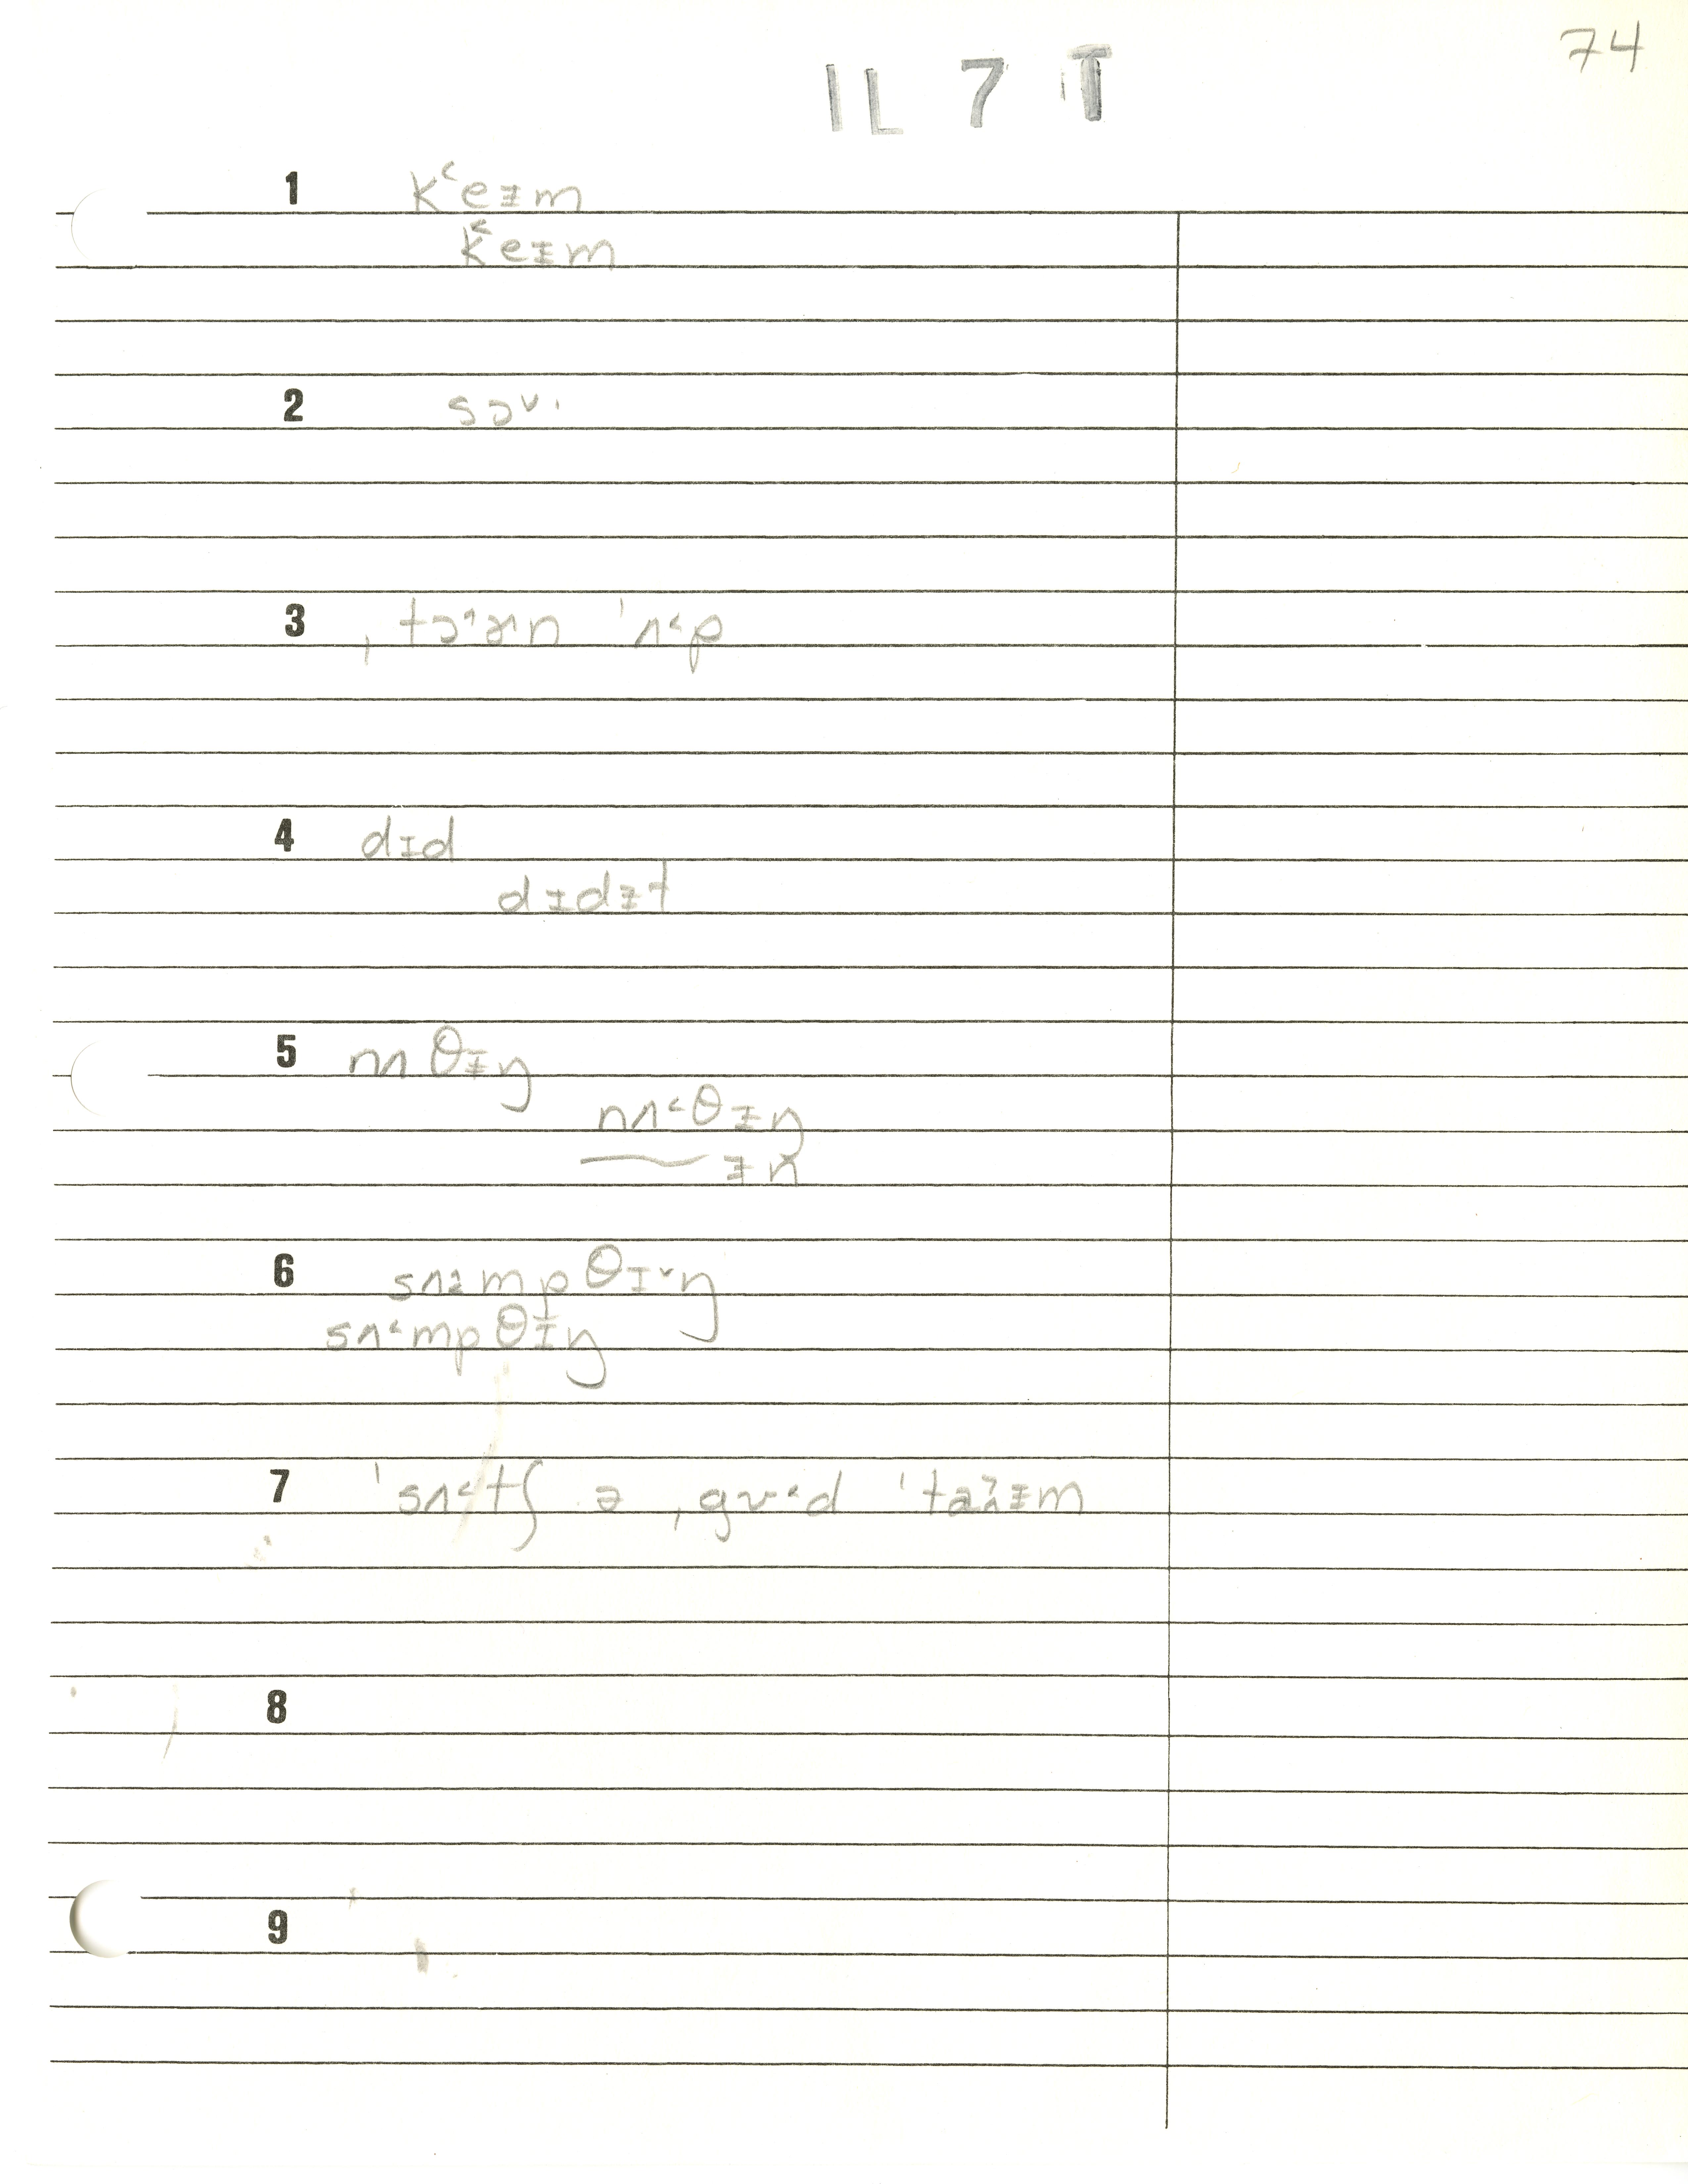 74
IL 7 T
1 K˂eɪm
k˂eɪm
2 sɔ˅·
3 ˌtɔ˄ɚ˄n ˈʌ˂p
4 dɪd
dɪdɪt
5 nʌθɪŋ
nʌ˂θɪŋ
ɪn
6 sʌ˂mpθɪ˅ŋ
sʌ˂mpθɪŋ
7 ˈsʌ˂tʃ ə ˌgʊ˂d ˈtaɪm
8
9